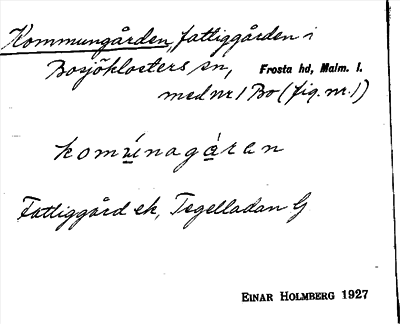 Kommungården, fattiggården i
Bosjöklosters sn, Frosta hd, Malm. l.
med nr 1 Bo (fig. nr. 1)
komúnagàran
Fattiggård ek, Tegelladan G
EINAR HOLMBERG 1927